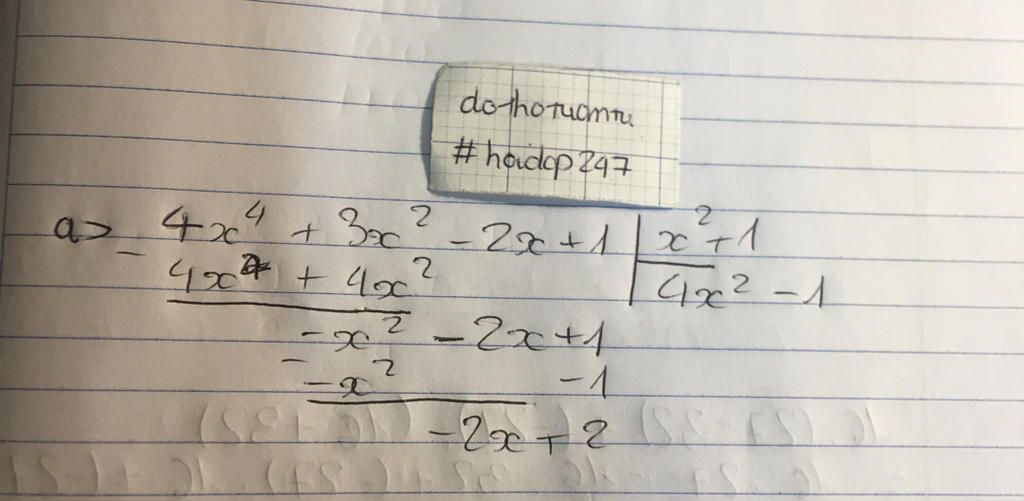 dothotuatru
#hoidap247
a> 4x⁴ + 3x² - 2x + 1 | x² + 1
- 4x⁴ + 4x² | 4x² - 1
-x² - 2x + 1
- -x² - 1
-2x + 2